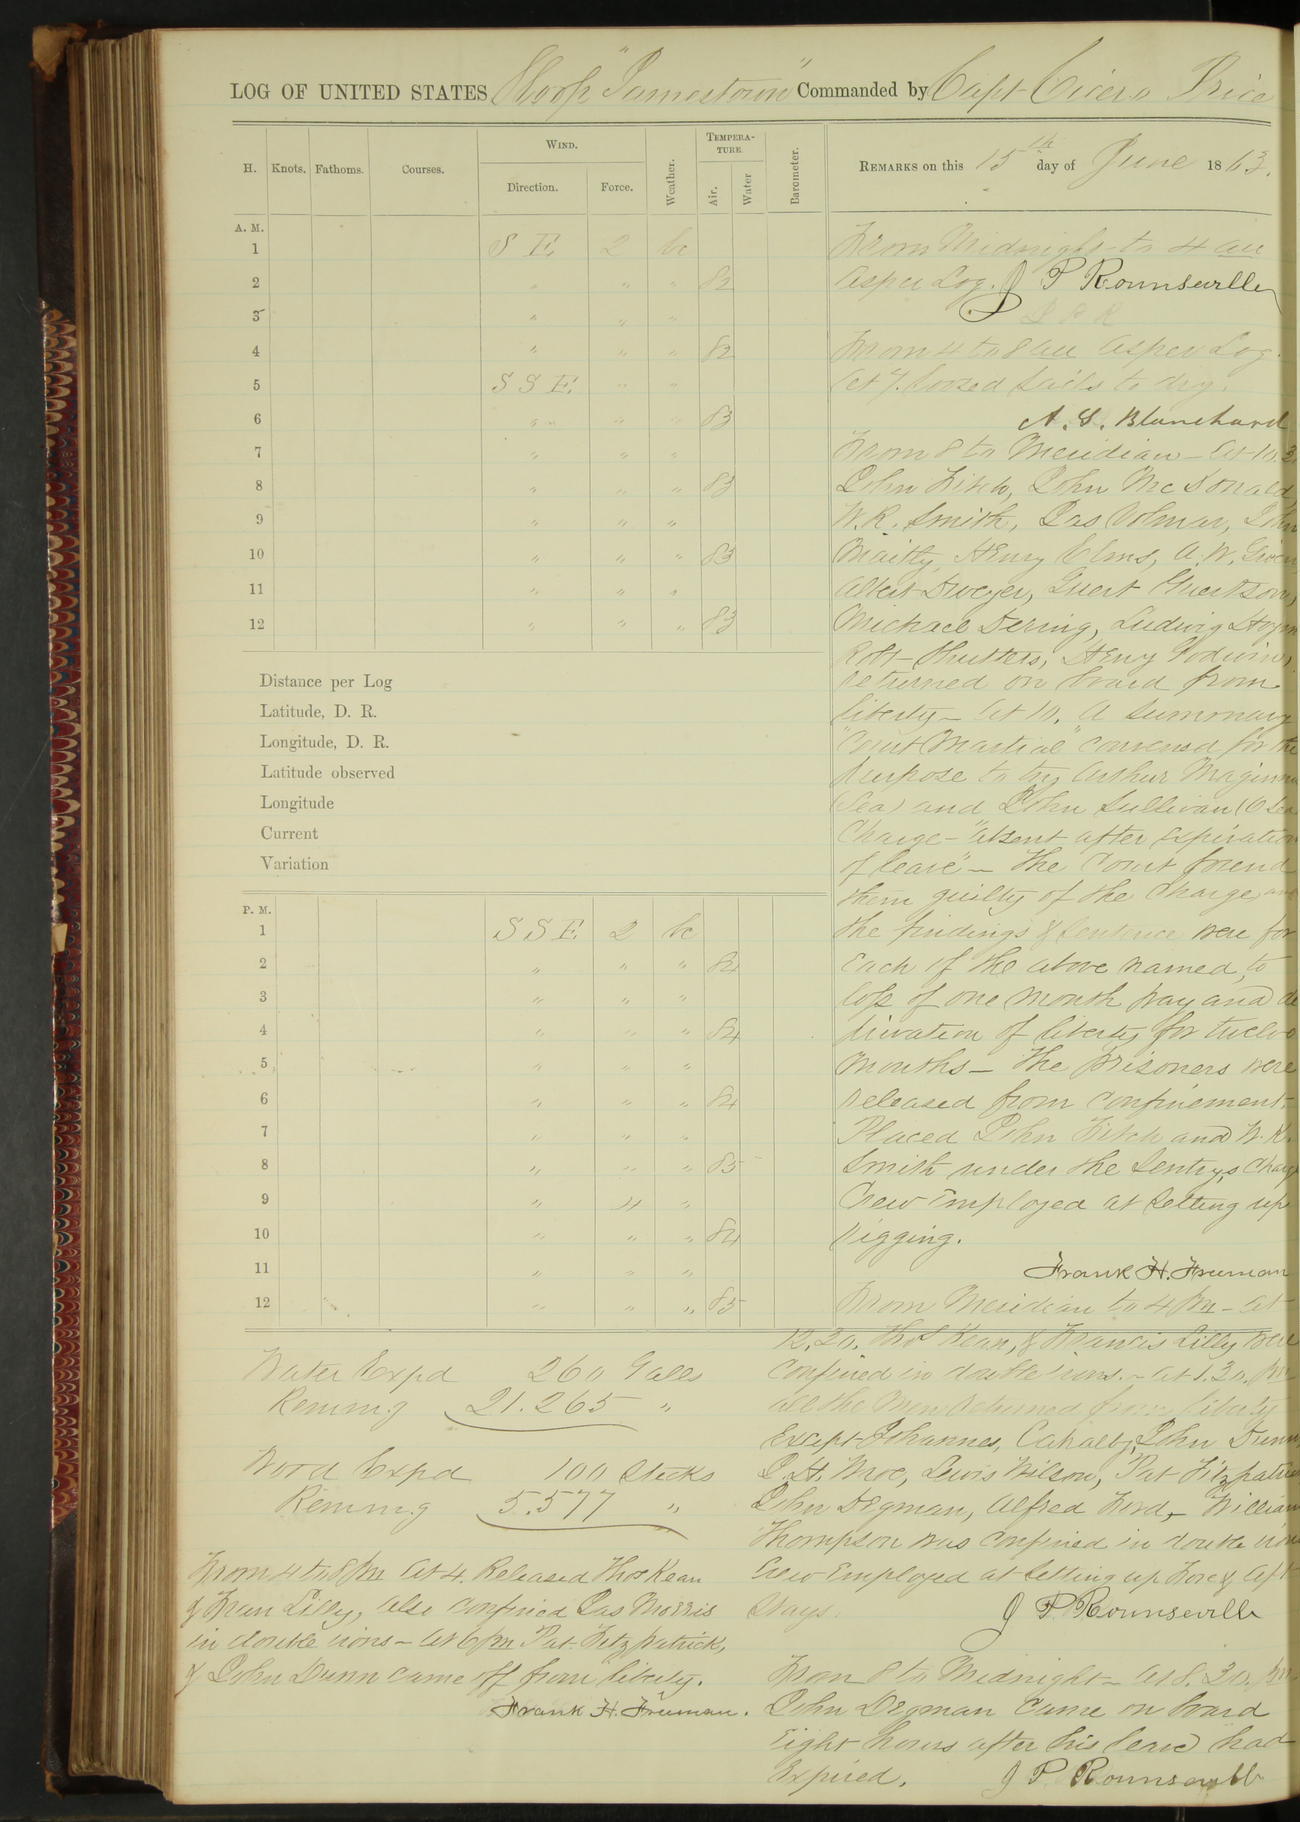 LOG OF UNITED STATES Sloop "Jamestown" Commanded by Capt Cicero Price
H. Knots. Fathoms. Courses. WIND. Direction. Force. Weather. TEMPERATURE. Air. Water Barometer.
REMARKS on this 15th day of June 1863.
A. M.
1 S E 2 bc
2 " " " 82
3 " " "
4 " " " 82
5 S S E " "
6 " " " 83
7 " " "
8 " " " 83
9 " " "
10 " " " 83
11 " " "
12 " " " 83
Distance per Log
Latitude, D. R.
Longitude, D. R.
Latitude observed
Longitude
Current
Variation
P. M.
1 S S E 2 bc
2 " " " 84
3 " " "
4 " " " 84
5 " " "
6 " " " 84
7 " " "
8 " " " 85
9 " 4 "
10 " " " 84
11 " " "
12 " " " 85
From Midnight to 4 am
as per Log. J P Rounseville
From 4 to 8 am as per Log.
At 7. loosed sails to dry.
A. S. Blanchard
From 8 to Meridian – At 10.
John Fitch, John McDonald,
W. R. Smith, Jas Volmar, John
Maitty, Henry Elms, A. W.
Albert Dwyer, Guert Guertson,
Michael Dering, Ludwig
Robt Henry Godwin,
returned on board from
liberty – At 10. A Summary
"Court Martial" convened for the
purpose to try Arthur
(Sea) and John Sullivan (O Sea
Charge – "absent after expiration
of leave" – The Court found
them guilty of the charge, and
the findings & sentence were for
Each of the above named, to
loss of one month pay and de
privation of liberty for twelve
months – The prisoners were
released from confinement.
Placed John Fitch and W. R.
Smith under the Sentry's charge
Crew employed at setting up
rigging.
Frank H. Freeman
From Meridian to 4 Pm – At
12.30. Thos Kean, & Francis Lilly were
confined in double irons. – at 1.30. Pm
all the Men returned from liberty
Except Johannes, John Dunn,
J. H. Moe, Lewis Wilson, Pat Fitzpatrick
John Degman, Alfred Ford, – William
Thompson was confined in double irons
Crew Employed at setting up Fore & Aft
Stays. J P Rounseville
Water Expd 260 Galls
Reming 21.265 "
Wood Expd 100 Sticks
Reming 5.577 "
From 4 to 8 Pm At 4. Released Thos Kean
& Fran Lilly, also confined Jas Morris
in double irons – At 6 Pm Pat. Fitzpatrick,
& John Dunn came off from liberty.
Frank H. Freeman.
From 8 to Midnight – At 8.30. Pm
John Degman came on board
Eight hours after his leave had
Expired. J P Rounseville